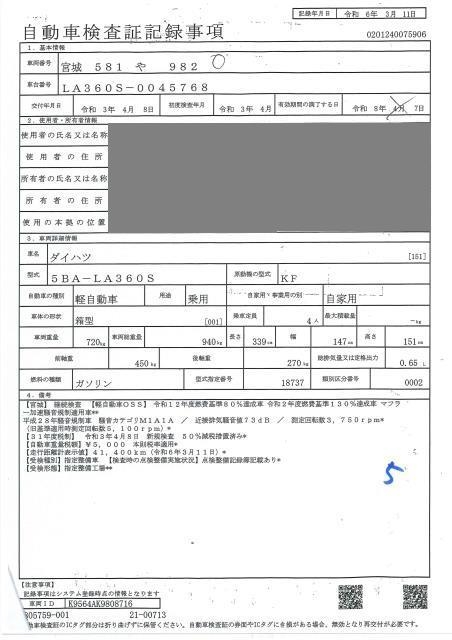 記録年月日 令和 6年 3月 11日
自動車検査証記録事項
0201240075906
1．基本情報
車両番号 宮城 581 や 982
車台番号 LA360S-0045768
交付年月日 令和 3年 4月 8日 初度検査年月 令和 3年 4月 有効期間の満了する日 令和 8年 4月 7日
2．使用者・所有者情報
使用者の氏名又は名称
使用者の住所
所有者の氏名又は名称
所有者の住所
使用の本拠の位置
3．車両詳細情報
車名 ダイハツ [151]
型式 5BA-LA360S 原動機の型式 KF
自動車の種別 軽自動車 用途 乗用 自家用・事業用の別 自家用
車体の形状 箱型 [001] 乗車定員 4人 最大積載量 -kg
車両重量 720kg 車両総重量 940kg 長さ 339cm 幅 147cm 高さ 151cm
前軸重 450kg 後軸重 270kg 総排気量又は定格出力 0.65 L
燃料の種類 ガソリン 型式指定番号 18737 類別区分番号 0002
4．備考
【宮城】 継続検査 【軽自動車OSS】 令和12年度燃費基準80％達成車 令和2年度燃費基準130％達成車 マフラ
ー加速騒音規制適用車**
平成28年騒音規制車 騒音カテゴリM1A1A ／ 近接排気騒音値73dB ／ 測定回転数3，750rpm*
(旧基準適用時測定回転数5，100rpm)*
【31年度税制】 令和3年4月8日 新規検査 50％減税措置済み*
【自動車重量税額】 ¥5，000 本則税率適用*
【走行距離計表示値】 41，400km（令和6年3月11日）*
【受検種別】指定整備車 【検査時の点検整備実施状況】点検整備記録簿記載あり*
【受検形態】指定整備工場**
5
【注意事項】
記録事項はシステム登録時点の情報となります
車両ID K9564AK9808716
805759-001 21-00713
自動車検査証のICタグ部分は折り曲げずに保管ください。自動車検査証の券面やICタグに合損がある場合、無効となり再交付が必要です。